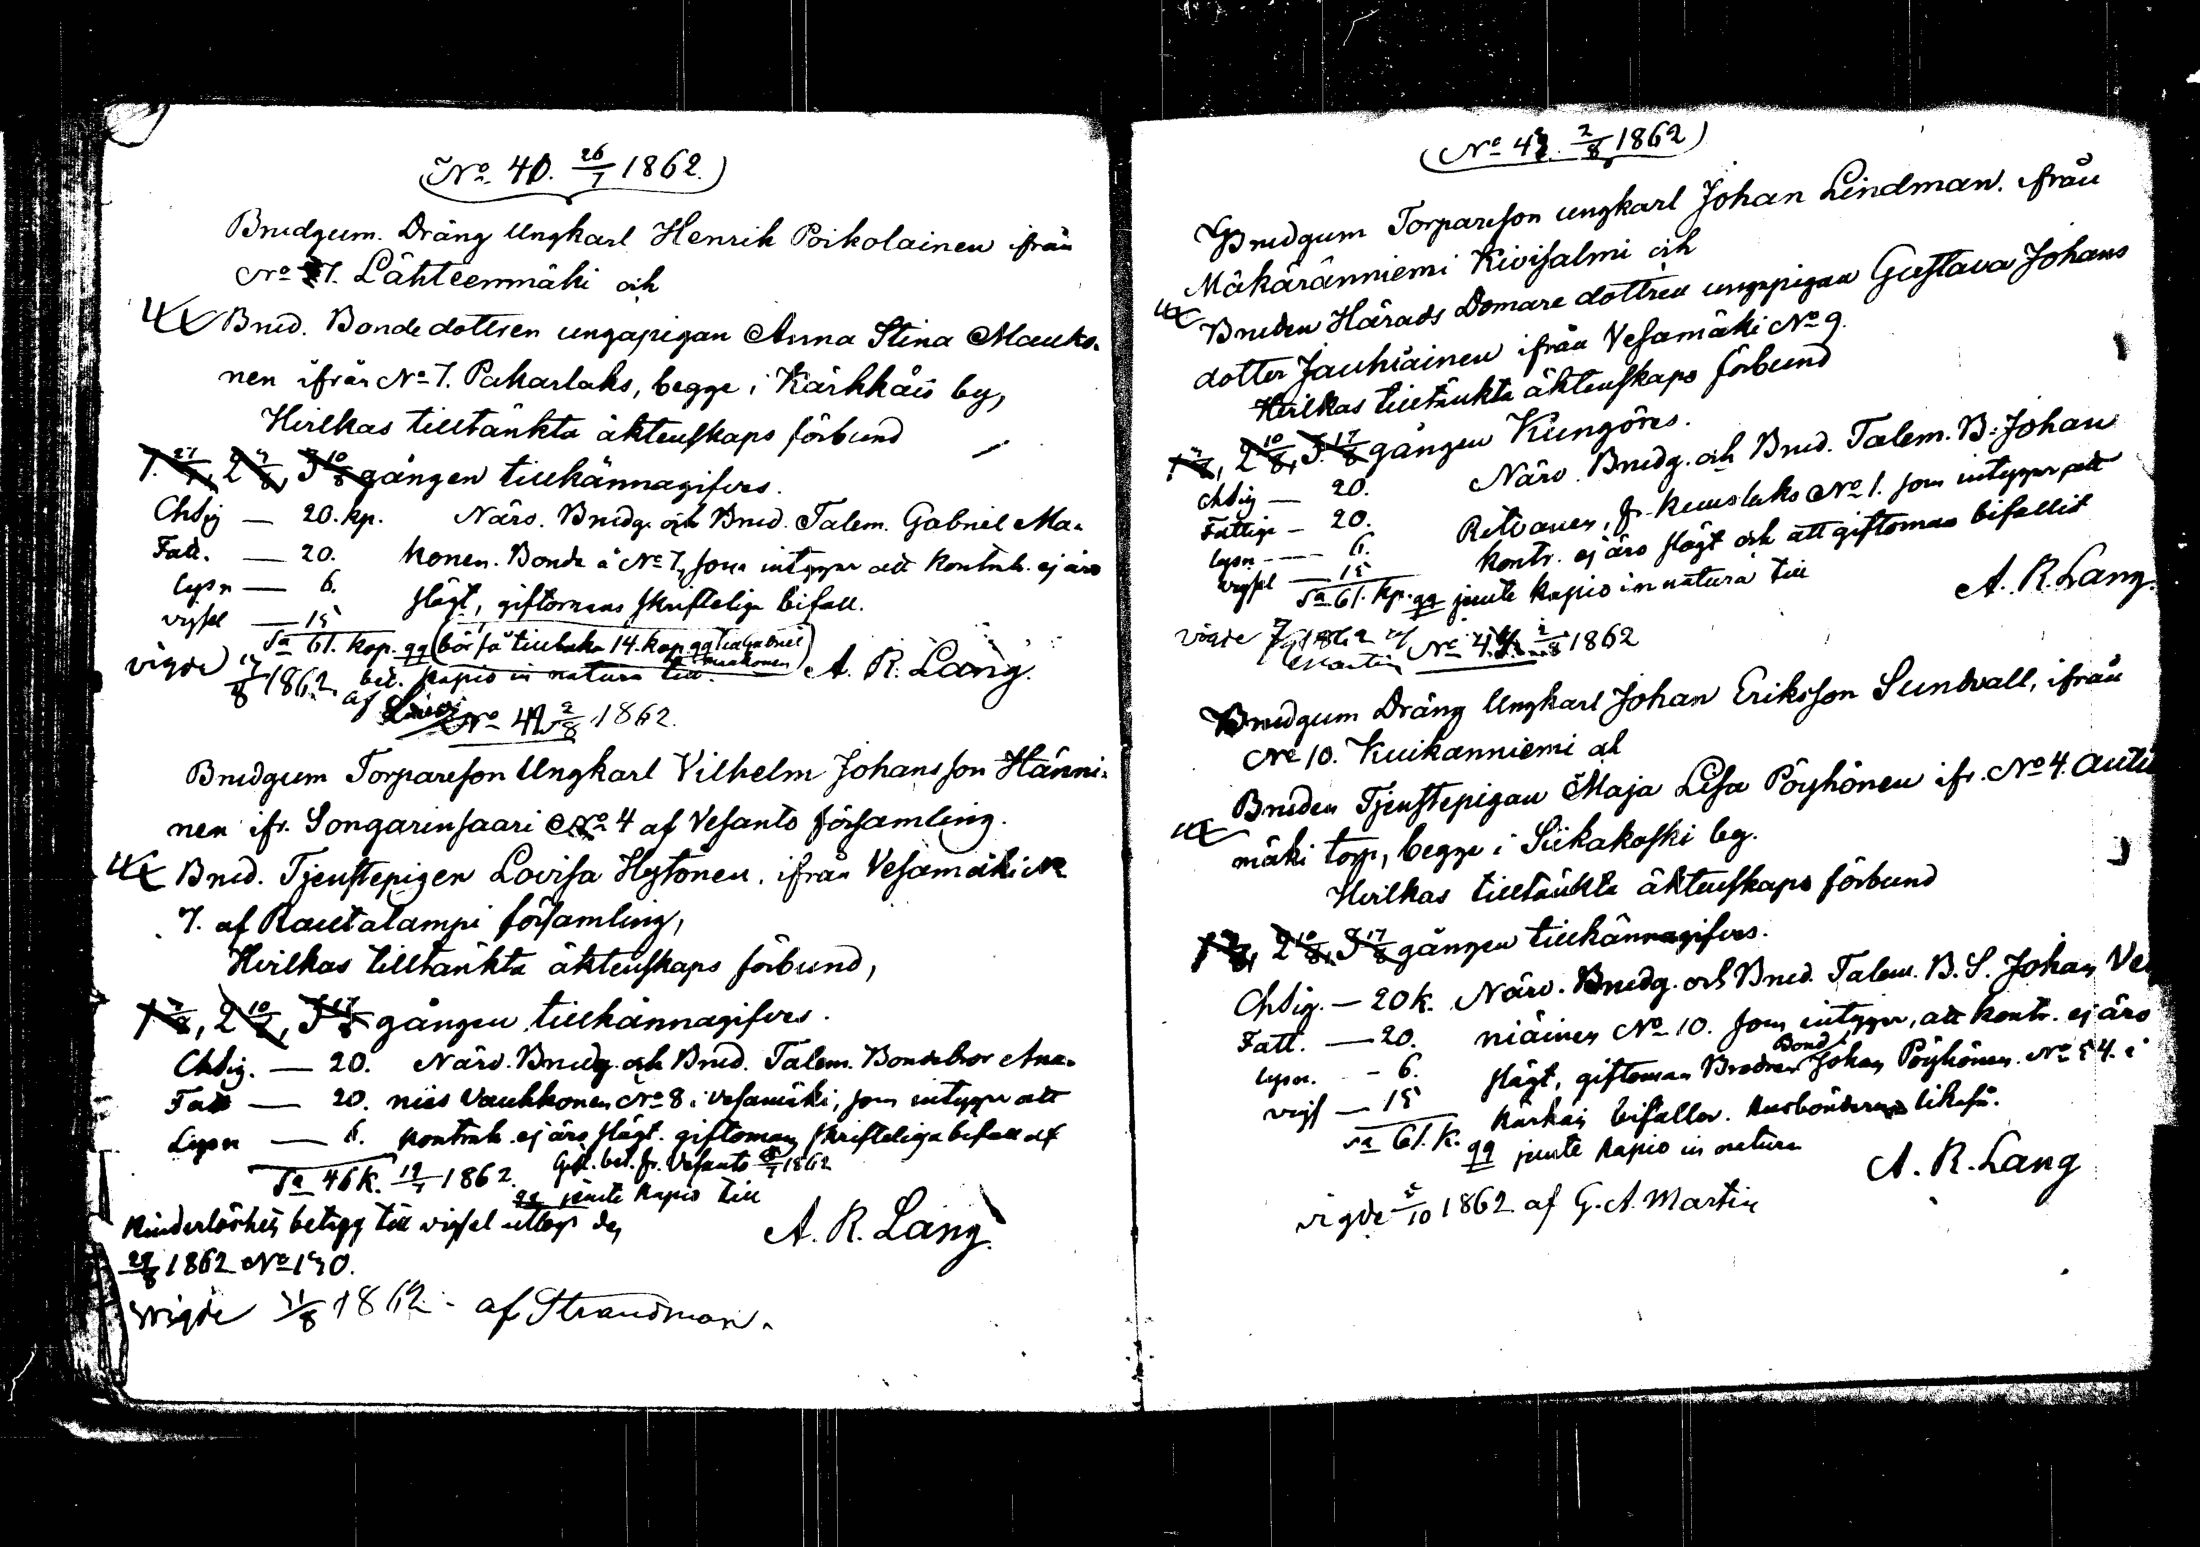 No 40. 26/7 1862.
Brudgum. Dräng Ungkarl Henrik Poikolainen ifrån
No 7. Lähteenmäki och
Brud. Bondedottren ungapigan Anna Stina Mauko-
nen ifrån No 7. Pakarlaks, begge i Kärkkäis by,
Hvilkas tilltänkta äktenskaps förbund
1. 27/7, 2 3/8, 3 10/8 gången tillkännagifves.
Chdig — 20. kp. Närv. Brudg. och Brud. Talem. Gabriel Ma-
Fatt. — 20. konen. Bonde å No 7, som intygar att kontrah. ej äro
lysn — 6. slägt, giftomans skriftelige bifall.
vigsel — 15
Sa 61. kop. qq (bör få tillbaka 14. kop. qq till Gabriel
Makonen)
bet. kapio in natura till. A. R. Lang.
vigde 17/8 1862. af
No 41 2/8 1862.
Brudgum Torpareson Ungkarl Vilhelm Johansson Hänni-
nen ifr. Songarinsaari No 4 af Vesanto församling.
Brud. Tjenstepigen Lovisa Hytönen, ifrån Vesamäki No
7. af Rautalampi församling,
Hvilkas tilltänkta äktenskaps förbund,
1 3/8, 2 10/8, 3 17/8 gången tillkännagifves.
Chdig. — 20. Närv. Brudg. och Brud. Talem. Bondebror Ana-
Fatt — 20. nias Vaukkonen No 8 i Vesamäki, som intygar att
Lysn — 6. kontrah. ej äro slägt. giftomans skrifteliga bifall af
Sa 46 k. 19/7 1862. Gift. bet. fr. Vesanto 1862
qq jemte kapio till
Hinderlöshets betygg till vigsel uttogs den
29/8 1862 No 190. A. R. Lang.
Wigde 31/8 1862 - af Strandman.
No 43. 2/8 1862
Brudgum Torpareson ungkarl Johan Lindman. ifrån
Mäkäränniemi Kivisalmi och
Bruden Härads Domare dottren ungapigan Gustava Johans
dotter Jauhiainen ifrån Vesamäki No 9.
Hvilkas tilltänkta äktenskaps förbund
1 3/8, 2 10/8, 3. 17/8 gången Kungöres.
Chdig — 20. Närv. Brudg. och Brud. Talem. B. Johan
Fattige — 20. Ritvanen, fr. Kuuslaks No 1. som intygar att
lysn — 6. kontr. ej äro slägt och att giftoman bifallit
vigsel — 15
Sa 61. kp. qq jemte kapio in natura till A. R. Lang.
vigde 1862 af
Martin
No 44 2/8 1862
Brudgum Dräng Ungkarl Johan Eriksson Sundvall, ifrån
No 10. Kuikanniemi och
Bruden Tjenstepigan Maja Lisa Pöyhönen ifr. No 4. Autio
mäki torp, begge i Siikakoski by.
Hvilkas tilltänkta äktenskaps förbund
1 3/8, 2 10/8, 3 17/8 gången tillkännagifves.
Chdig. — 20 k. Närv. Brudg. och Brud. Talem. B. S. Johan Ve
Fatt. — 20. niäinen No 10. som intygar, att kontr. ej äro
lysn. - 6. slägt, giftoman Brodren Bond. Johan Pöyhönen. No 4. i
vigs — 15 Kärkäis bifaller. Husbönderne likaså.
Sa 61. k. qq jemte kapio in natura
A. R. Lang
vigde 5/10 1862 af G. A. Martin